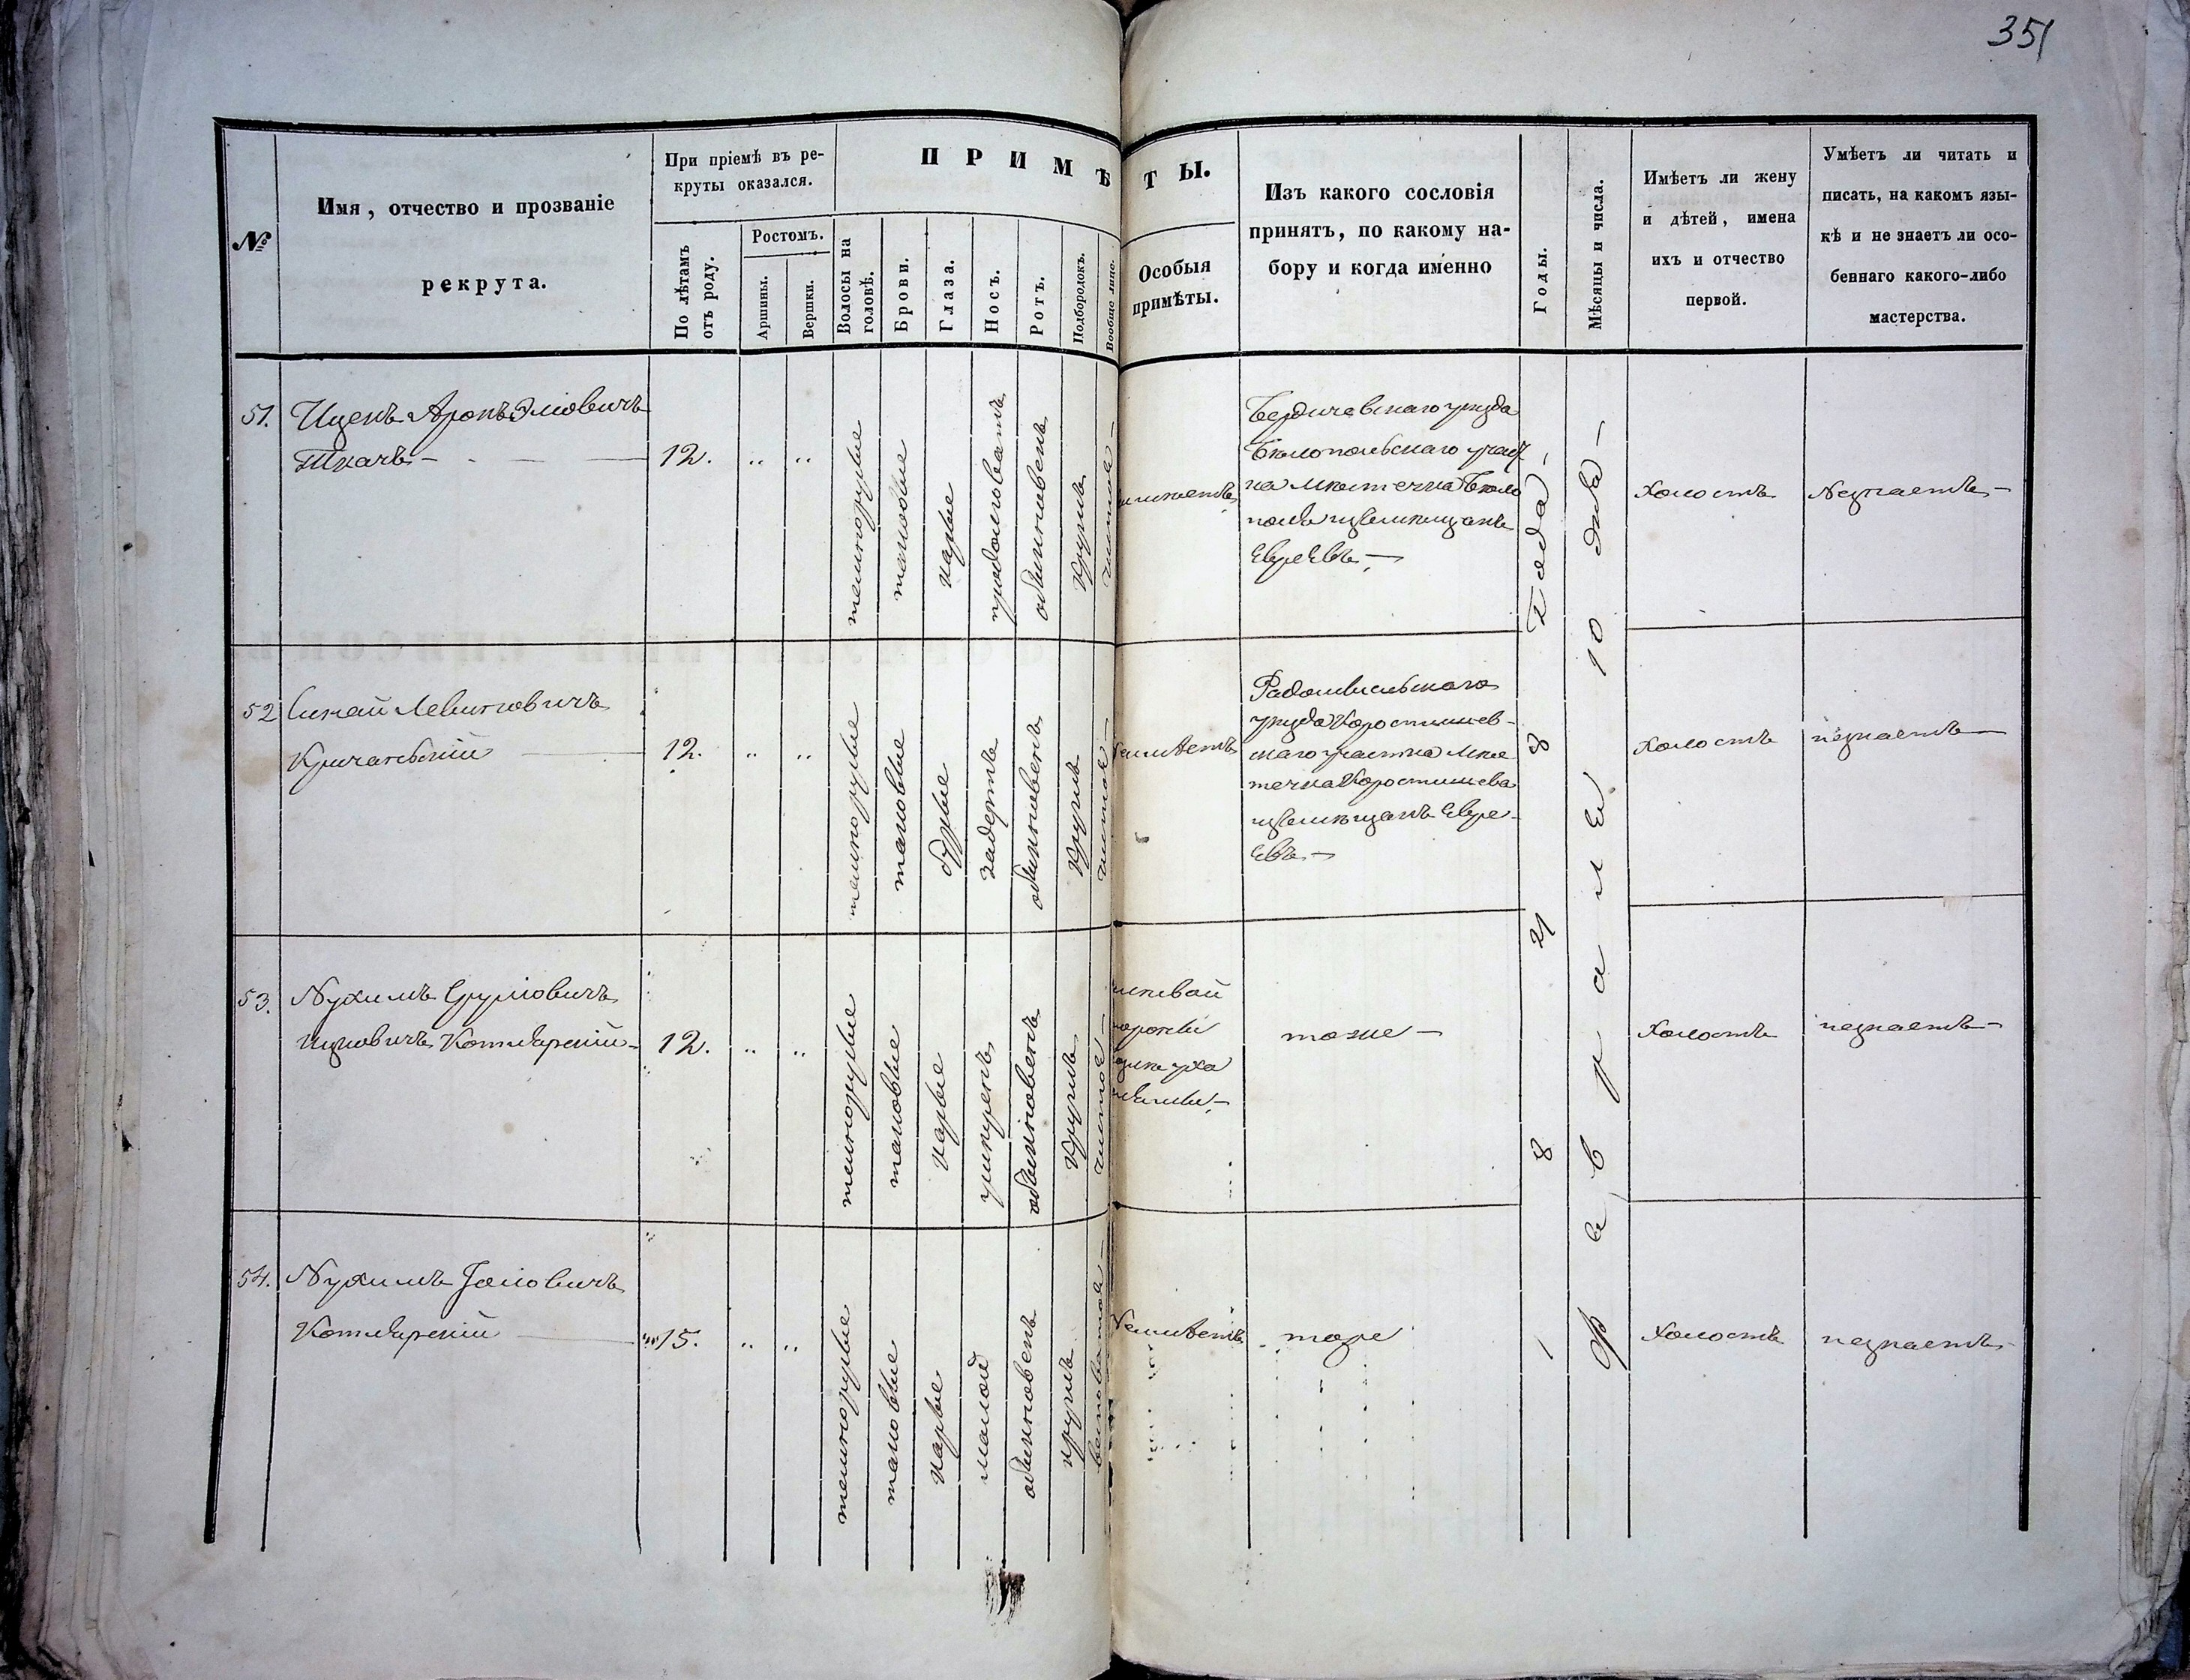 351
№
Имя, отчество и прозваніе
рекрута.
При пріемѣ въ ре-
круты оказался.
По лѣтамъ
отъ роду.
Ростомъ.
Аршины.
Вершки.
ПРИМѢТЫ.
Волосы на
головѣ.
Брови.
Глаза.
Носъ.
Ротъ.
Подбородокъ.
Вообще лице.
Особыя
примѣты.
Изъ какого сословія
принятъ, по какому на-
бору и когда именно
Годы.
Мѣсяцы и числа.
Имѣетъ ли жену
и дѣтей, имена
ихъ и отчество
первой.
Умѣетъ ли читать и
писать, на какомъ язы-
кѣ и не знаетъ ли осо-
беннаго какого-либо
мастерства.
51.
Ицекъ Аронъ Эліовичъ
Ткачъ
12.
темнорусые
таковые
карые
продолговатъ
обыкновенъ
круглъ
чистое
неимеетъ
Бердичевскаго уезда
Белопольскаго участ
ка местечка Бело
поля изъ мещанъ
Евреевъ
холостъ
Незнаетъ
52
Синай Левиковичъ
12.
темнорусые
таковые
бурые
задертъ
обыкновенъ
круглъ
чистое
Неимеетъ
Радомысльскаго
уезда Коростышев-
скаго участка мес
течка Коростышева
изъ мещанъ Евре-
евъ
холостъ
незнаетъ
53.
Нухимъ Сруліовичъ
Ицковичъ Котлярскій
12.
темнорусые
таковые
карые
обыкновенъ
круглъ
чистое
тоже
холостъ
незнаетъ
54.
Нухимъ
Котлярскій
15.
темнорусые
таковые
карые
малой
обыкновенъ
круглъ
Неимеетъ
тоже
холостъ
незнаетъ
1848 Года
Февраля 10 дня